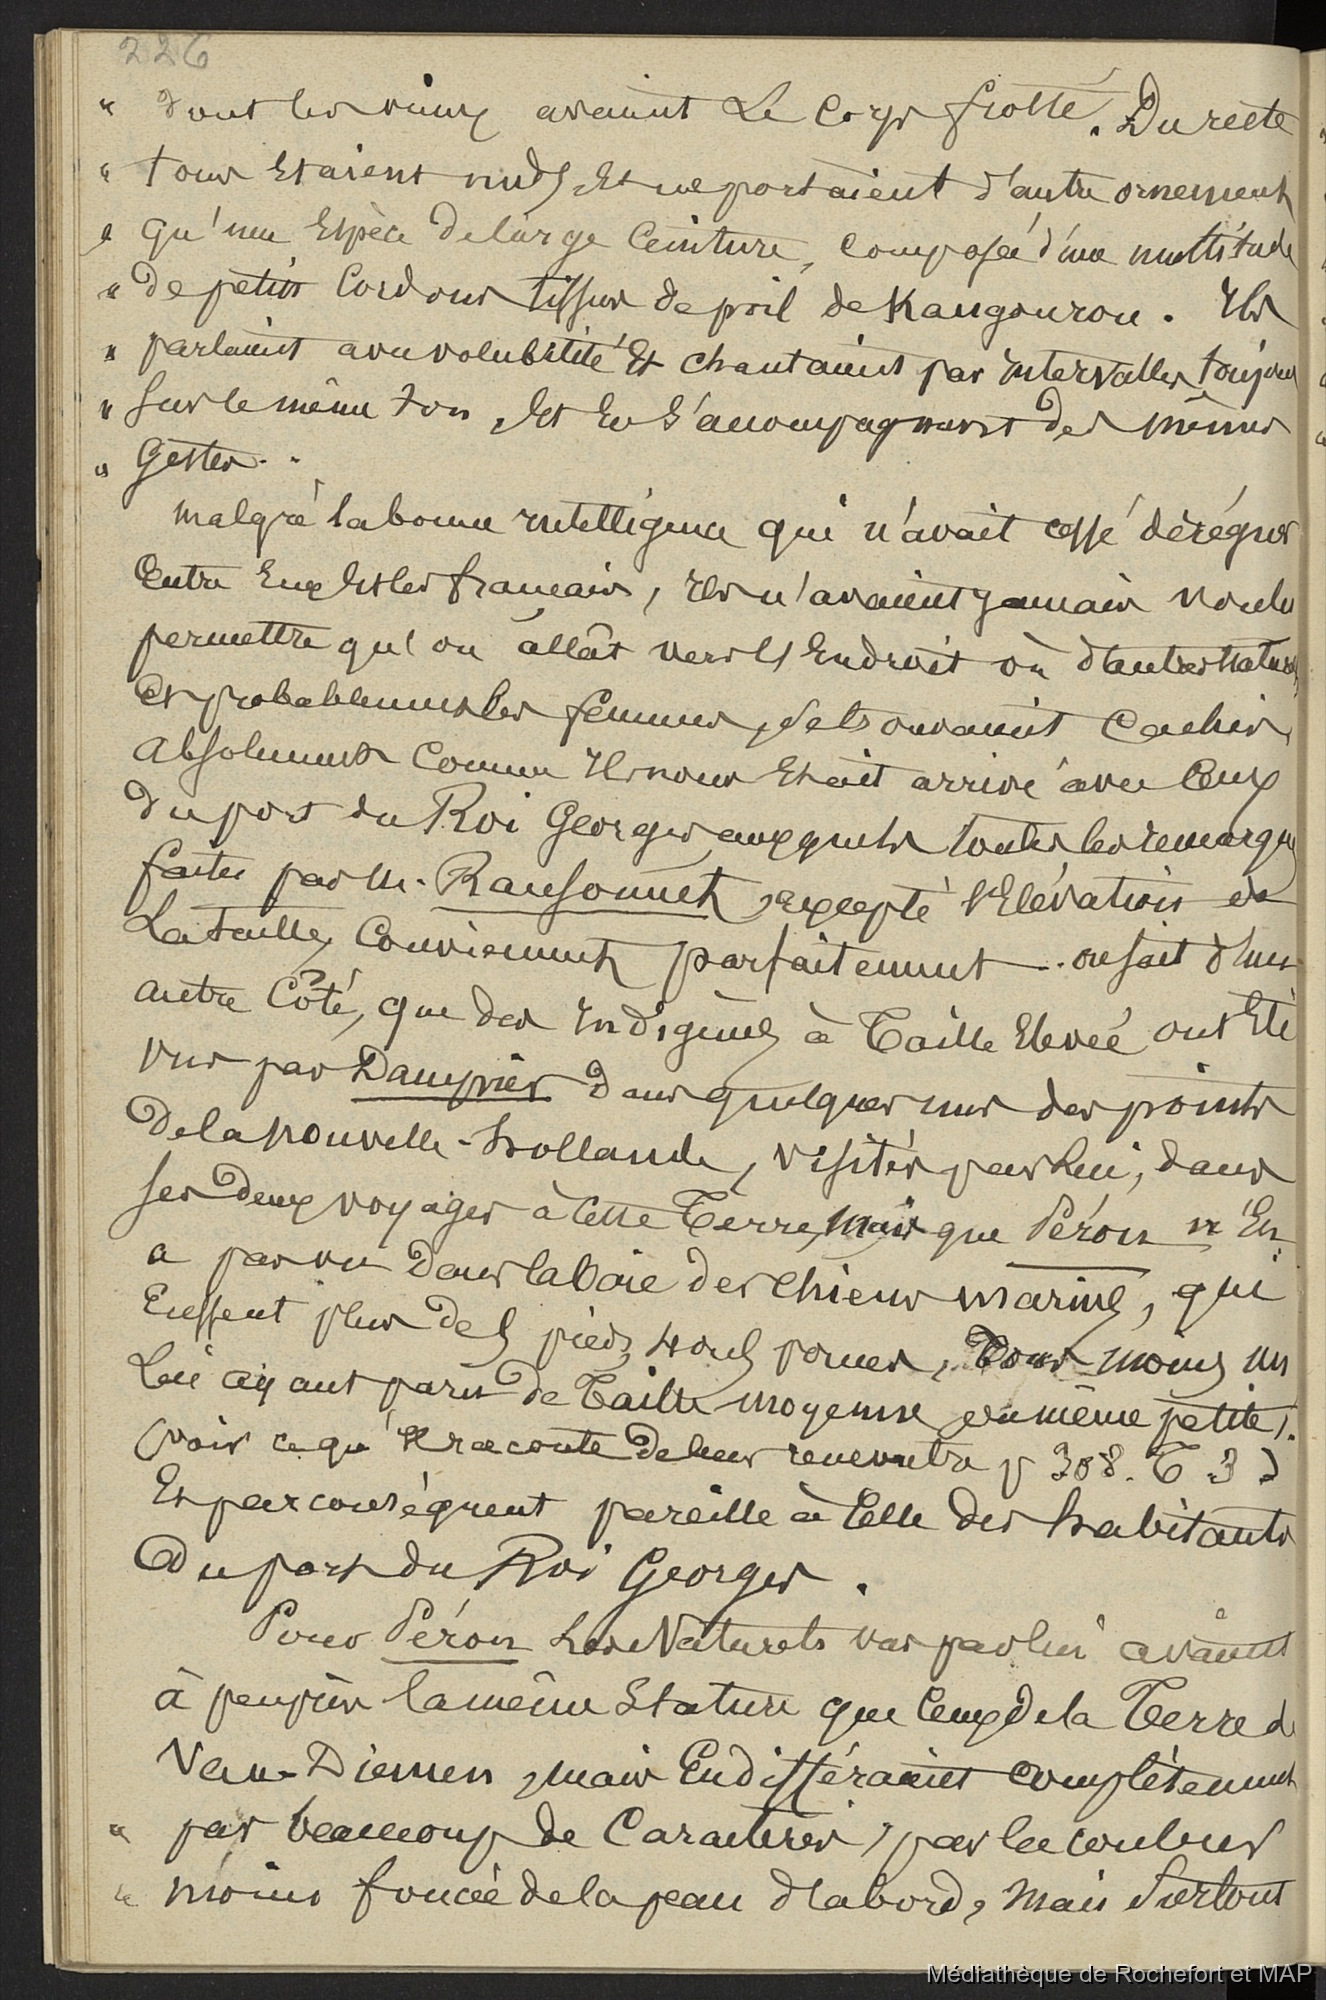 226
" dont les vieux avaient le corps frotté. Du reste
" tous étaient nuds, et ne portaient d'autre ornement
" qu'une Espèce de large Ceinture, composée d'une multitude
" de petits Cordons tissus de poil de Kangourou. Ils
" parlaient avec volubilité Et chantaient par intervalles, toujours
" sur le même ton, Et En s'accompagnant des mêmes
" Gestes. .
malgré la bonne intelligence qui n'avait cessé de régner
Entre Eux Et les français, Ils n'avaient jamais voulu
permettre qu'on allât vers l'Endroit où d'autres Naturels,
Et probablement les femmes, se trouvaient Cachés,
Absolument Comme Il nous Etait arrivé avec Ceux
du port du Roi Georges auxquels toutes les remarques
faites par Mr. Ransonnet, excepté l'Elévation de
La taille, Conviennent parfaitement. on sait d'un
autre Côté, que des Indigènes à Taille Elevée ont Eté
vus par Dampier dans quelques uns des points
De la Nouvelle-hollande, visités par Lui, dans
ses deux voyages à Cette Terre, Mais que Péron n'En
a pas vu Dans la Baie des Chiens marins, qui
Eussent plus de 5 pieds, 4 ou 5 pouces, Tous moins un
Lui ayant paru de Taille moyenne ou même petite,
(voir ce qu'Il raconte de leur rencontre p 308. T 3)
Et par conséquent pareille à Celle des habitants
Du port du Roi Georges.
Pour Péron Les Naturels vus par lui avaient
à peu près la même Stature que Ceux de la Terre de
Van-Diemen, mais En différaient complètement
" par beaucoup de Caractères, par la couleur
" moins foncée de la peau d'abord, Mais Surtout
Médiathèque de Rochefort et MAP